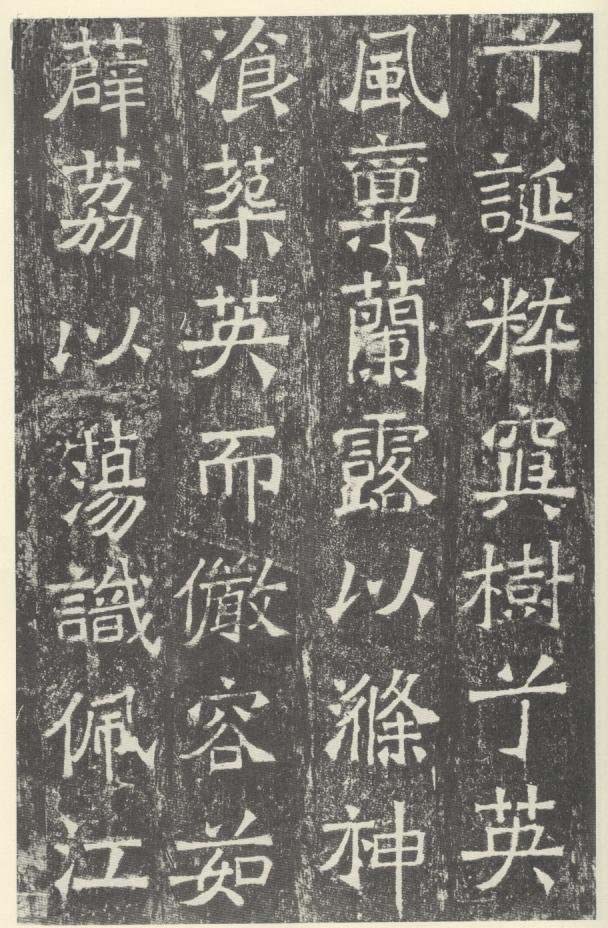 于誕粹冥樹于英
風稟蘭露以滌神
湌蘂英而儼容茹
薜荔以蕩識佩江